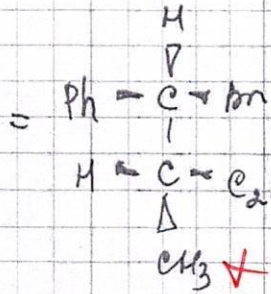 H
= Ph - C - Br
H - C - C2
CH3